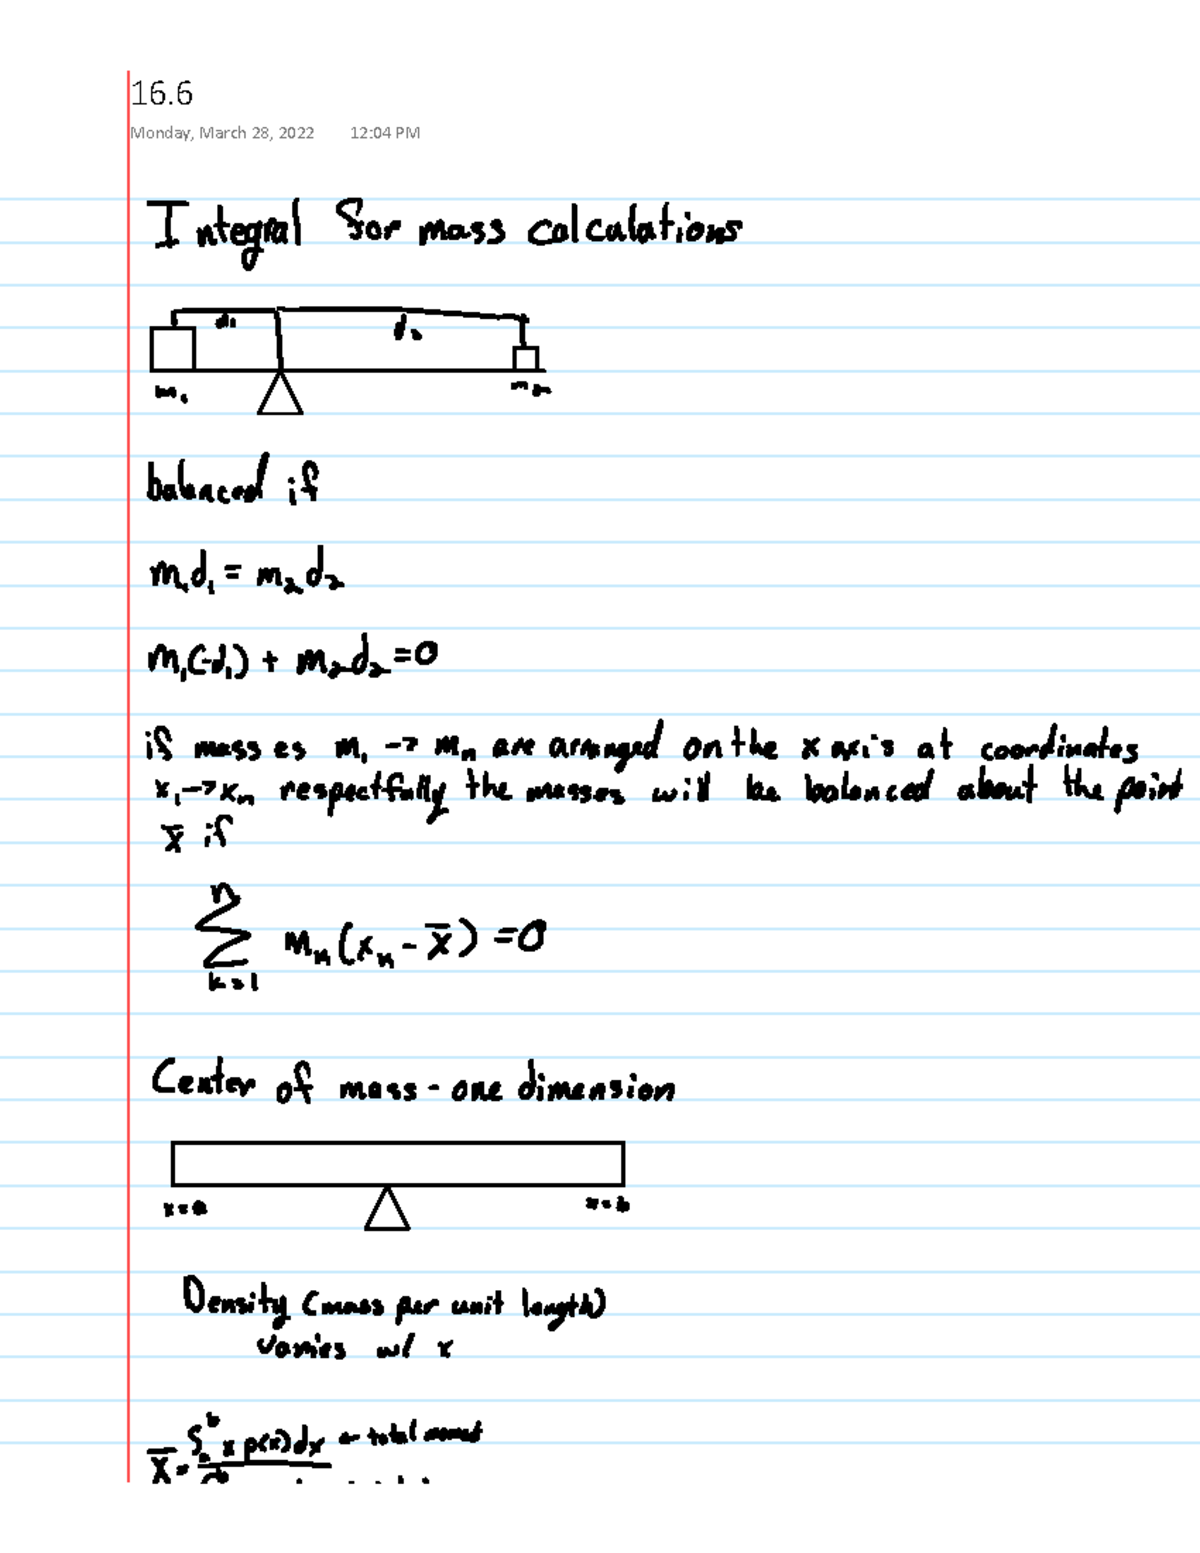 16.6
Monday, March 28, 2022 12:04 PM
Integral for mass calculations
d₁ d₂
m₁ m₂
balanced if
m₁d₁ = m₂d₂
m₁(-d₁) + m₂d₂ = 0
if masses m₁ -> mₙ are arranged on the x axis at coordinates
x₁->xₙ respectfully the masses will be balanced about the point
x̄ if
n
∑ mₙ(xₙ - x̄) = 0
k=1
Center of mass - one dimension
x=a x=b
Density (mass per unit length)
varies w/ x
x̄ = ∫ₐᵇ x p(x) dx ← total moment